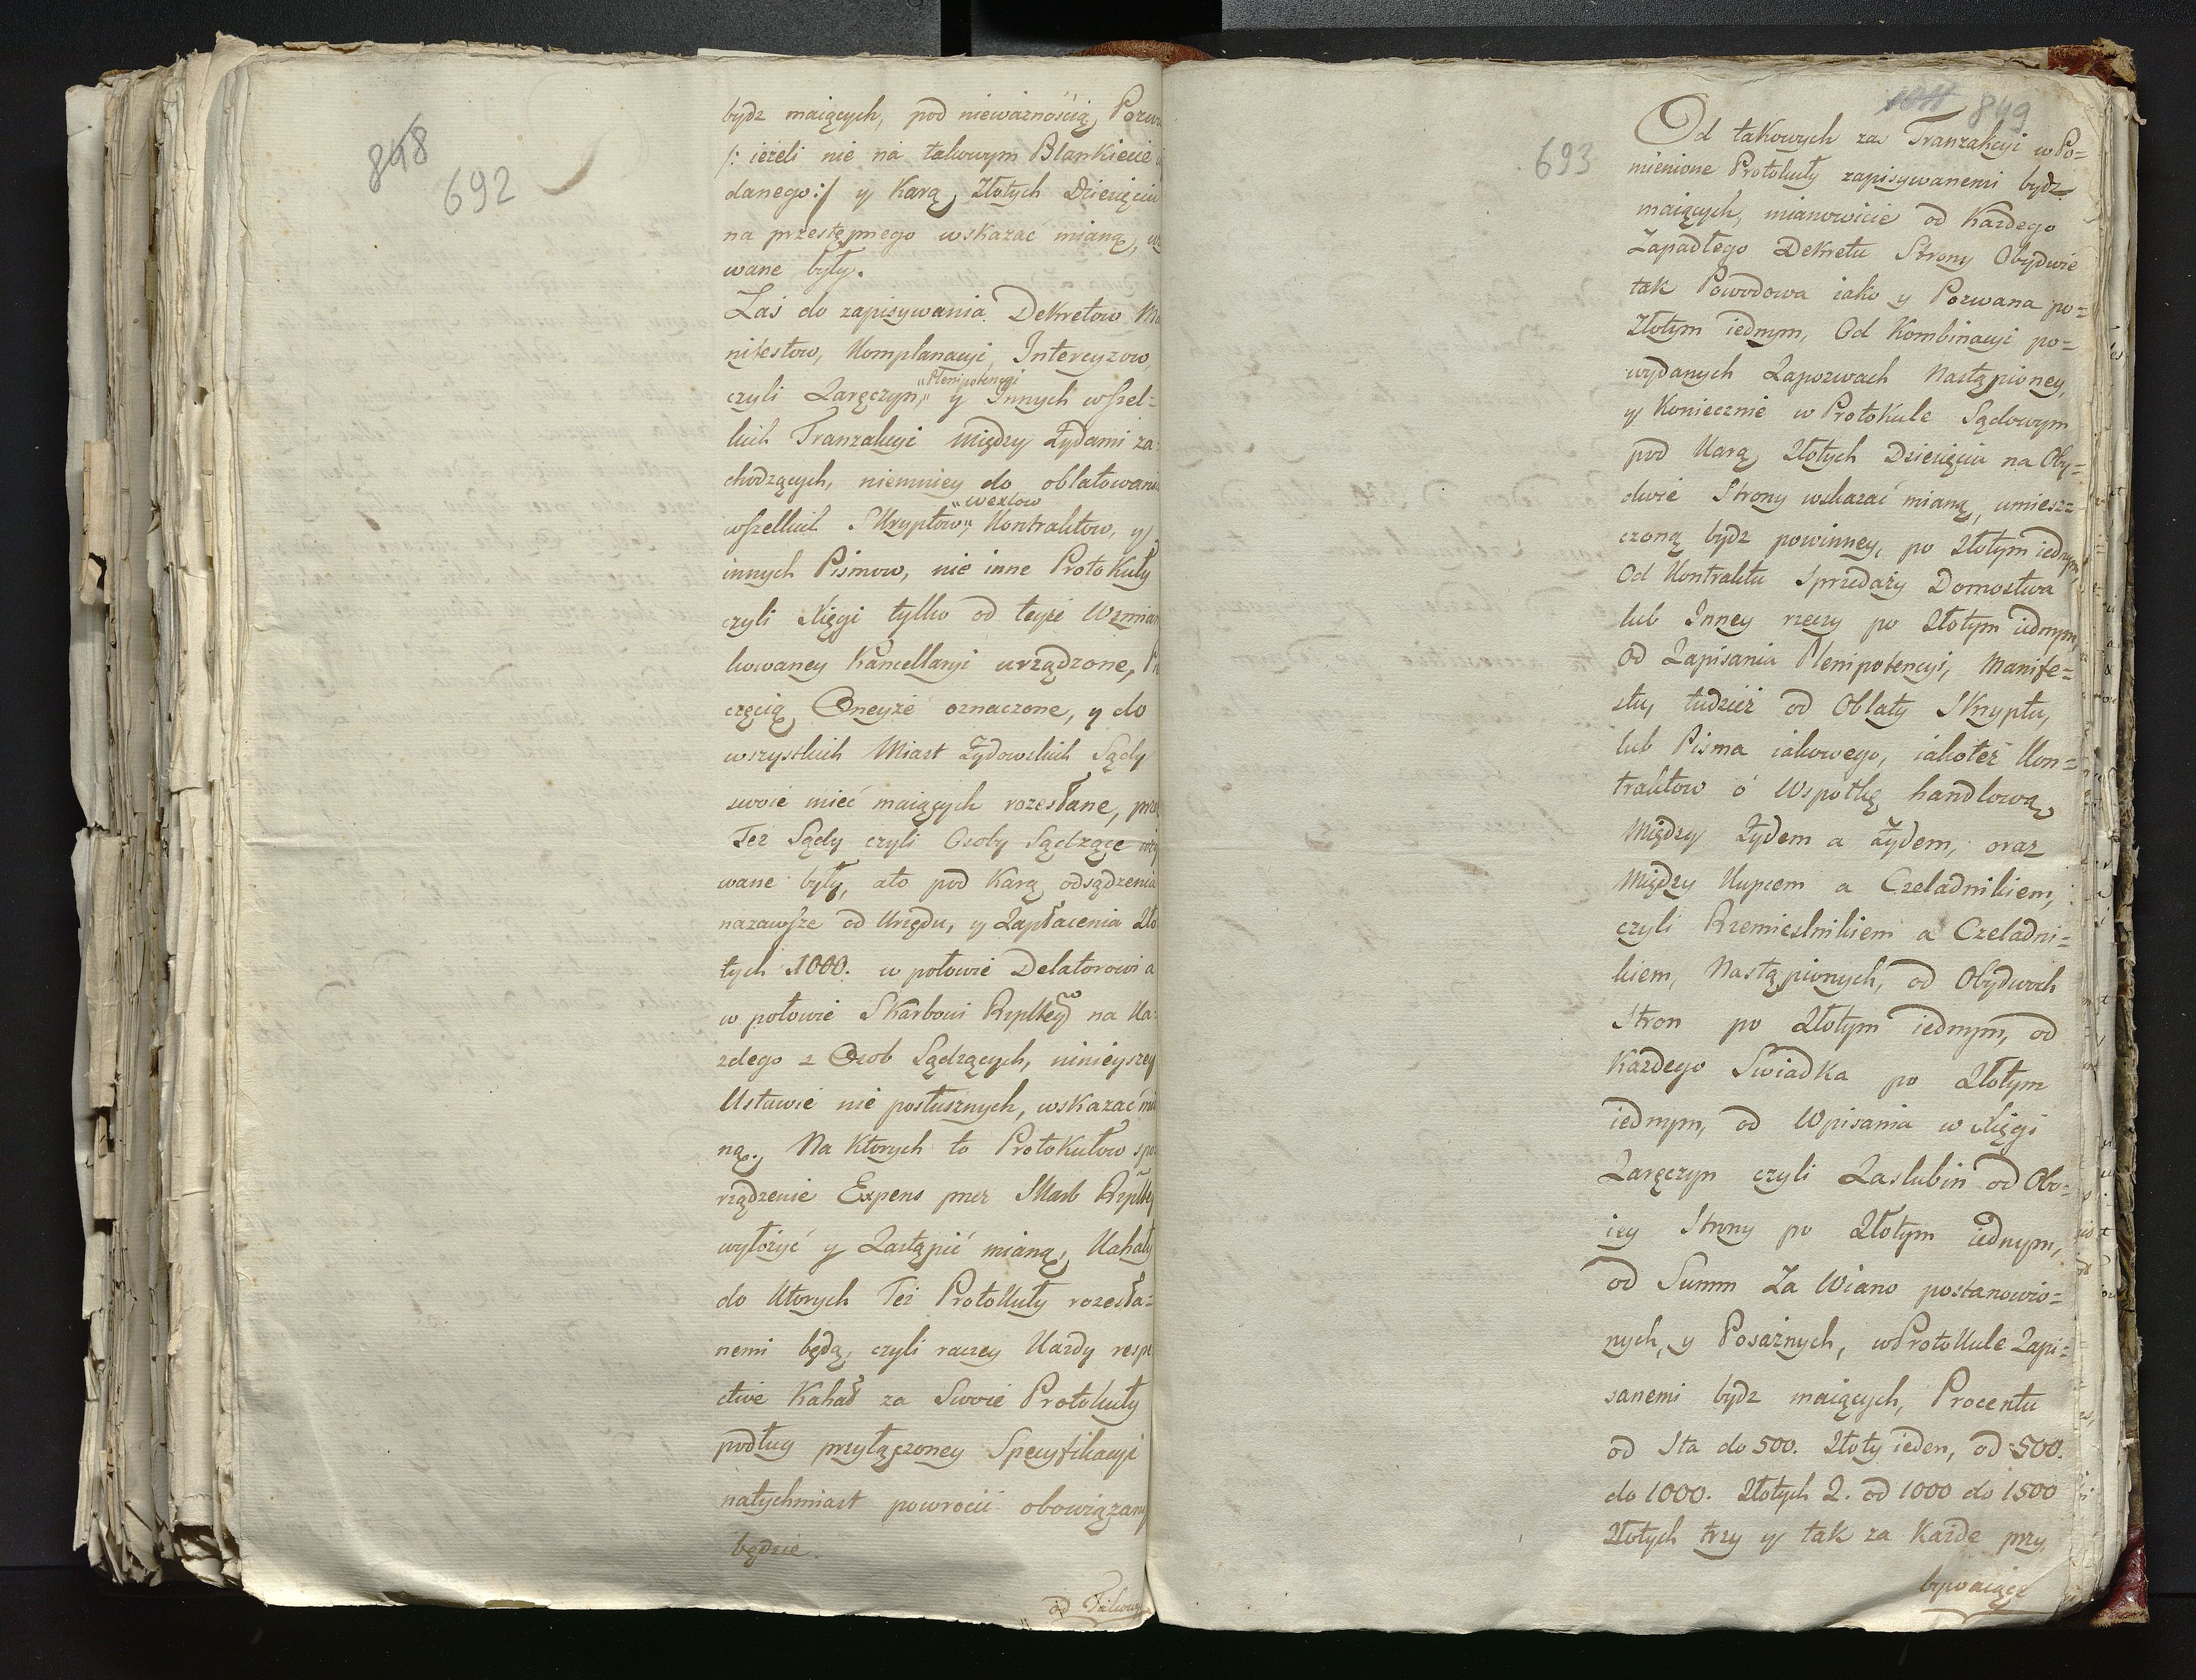 848
692
bydz maiących, pod nieważnością Pozwu
/: ieżeli nie na takowym Blankiecie
danego:/ y Karą Złotych Dziesięciu
na przestępnego wskazać mianą,
wane były.
Zaś do zapisywania Dekretow Ma
nifestow, Komplanacyi, Intercyzow
czyli Zaręczyn, "Plenipotencyi" y Innych wszel=
kich Tranzakcyi między Żydami za=
chodzących, niemniey do oblatowania
wszelkich Skryptow, "Wexlow" Kontraktow, y
innych Pismow, nie inne Protokuły
czyli Xięgi tylko od teyże Wzmian
kowaney Kancellaryi urządzone, Pie
częcią Oneyże oznaczone, y do
wszystkich Miast Żydowskich Sądy
swoie mieć maiących rozesłane, prze
Też Sądy czyli Osoby Sądzące uży
wane były, ato pod Karą odsądzenia
nazawsze od Urzędu, y Zapłacenia Zło
tych 1000. w połowie Delatorowi a
w połowie Skarbowi Rzplltey na Ka=
zdego z Osob Sądzących, ninieyszey
Ustawie nie posłusznych, wskazać mia
ną. Na ktorych to Protokułow spo
rządzenie Expens przez Skarb Rzpltey
wyłożyć y Zastąpić mianą, Kahały
do Ktorych Też Protokuły rozesła=
nemi będą, czyli raczey Kazdy respe
ctive Kahał za Swoie Protokuły
podług przyłączoney Specyfikacyi
natychmiast powrocić obowiązany
będzie.
od Takowy
849
693
Od takowych za Tranzakcyi w Po=
mienione Protokuły zapisywanemi bydz
maiących, mianowicie od Każdego
Zapadłego Dekretu Strony Obydwie
tak Powodowa iako y Pozwana po=
Złotym iednym, Od Kombinacyi po=
wydanych Zapozwach Nastąpioney,
y Koniecznie w Protokule Sądowym
pod Karą Złotych Dziesięciu na Oby=
dwie Strony wskazać mianą, umiesz=
czoną bydz powinney, po Złotym iednym,
Od Kontraktu Sprzedaży Domostwa
lub Inney rzeczy po Złotym iednym,
Od Zapisania Plenipotencyi, Manife=
stu, tudzież od Oblaty Skryptu,
lub Pisma iakowego, iakoteż Kon=
traktow o Wspołkę handlową
Między Żydem a Żydem, oraz
Między Kupcem a Czeladnikiem,
czyli Rzemieslnikiem a Czeladni=
kiem, Nastąpionych, od Obydwoch
Stron po Złotym iednym, od
Każdego Swiadka po Złotym
iednym, od Wpisania w Xięgi
Zaręczyn czyli Zaslubin od Obo=
iey Strony po Złotym iednym,
od Summ Za Wiano postanowio=
nych, y Posażnych, w Protokule Zapi=
sanemi bydz maiących, Procentu
od Sta do 500. Złoty ieden, od 500.
do 1000. Złotych 2. od 1000 do 1500
Złotych trzy y tak za Każde przy
bywaiące